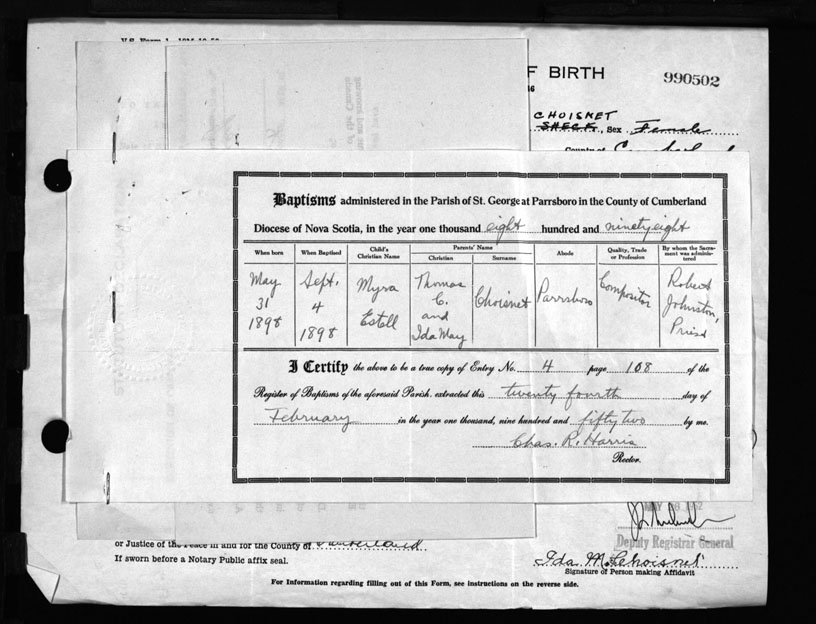 V.S. Form 1
F BIRTH
990502
CHOISNET
SHECK, Sex Female
County of
Baptisms administered in the Parish of St. George at Parrsboro in the County of Cumberland
Diocese of Nova Scotia, in the year one thousand eight hundred and ninety eight
When born When Baptised Child's Christian Name Parents' Name Christian Surname Abode Quality, Trade or Profession By whom the Sacrament was administered
May 31 1898 Sept. 4 1898 Myra Estell Thomas C. and Ida May Choisnet Parrsboro Compositor Robert Johnston, Priest
I Certify the above to be a true copy of Entry No. 4 page 108 of the
Register of Baptisms of the aforesaid Parish, extracted this twenty fourth day of
February in the year one thousand, nine hundred and fifty two by me.
Chas. R. Harris
Rector.
Deputy Registrar General
or Justice of the Peace in and for the County of Cumberland
If sworn before a Notary Public affix seal.
Ida M. Choisnet
Signature of Person making Affidavit
For Information regarding filling out of this Form, see instructions on the reverse side.